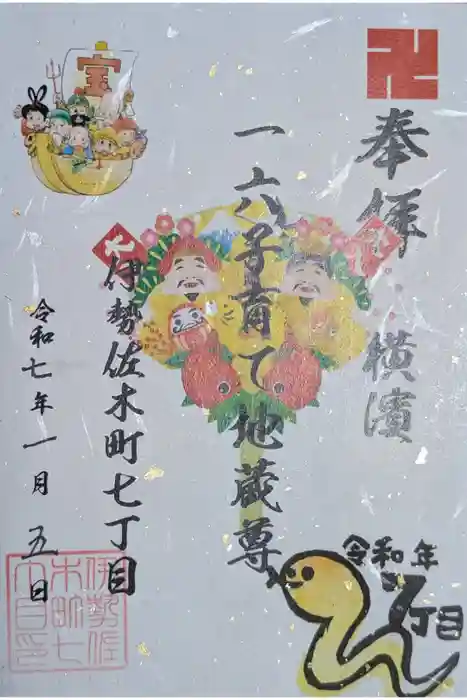 卍
奉拝 横濱
一六子育て地蔵尊
伊勢佐木町七丁目
令和七年一月五日
宝
令和年
丁目
伊勢佐
木町七
丁目印